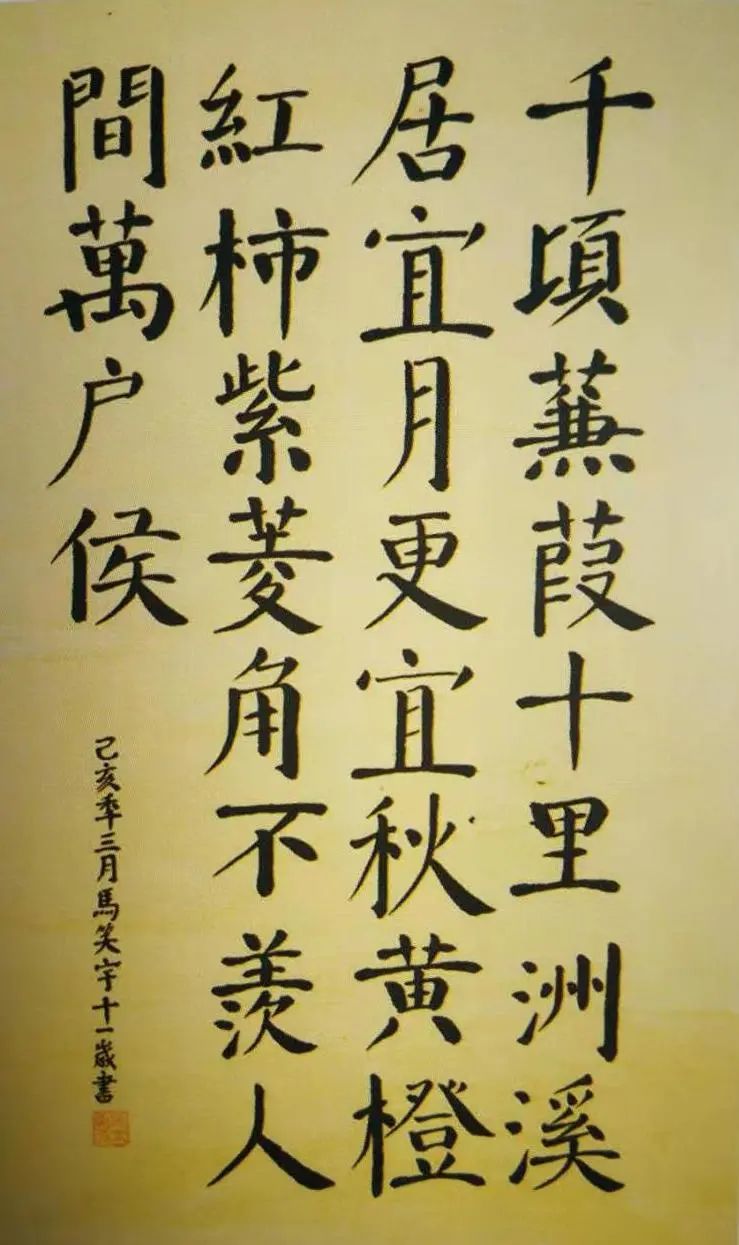 千頃蒹葭十里洲溪
居宜月更宜秋黄橙
紅柿紫菱角不羨人
間萬户侯
己亥年三月馬笑宇十一歲書